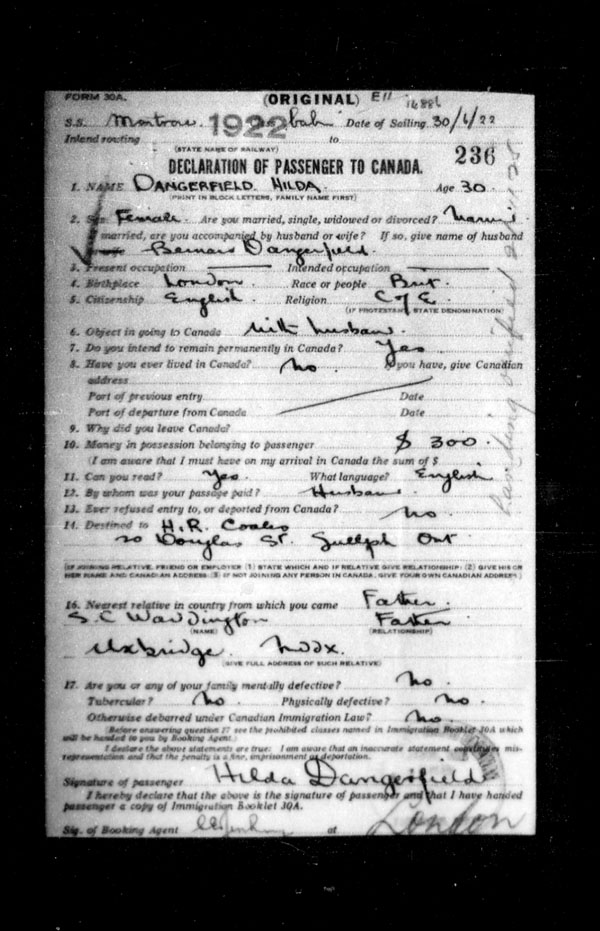 FORM 30A. (ORIGINAL) E11
S.S. Montrose. 1922 cabin Date of Sailing 30/6/22
Inland routing to
(STATE NAME OF RAILWAY) 236
DECLARATION OF PASSENGER TO CANADA.
1. NAME DANGERFIELD. HILDA. Age 30.
(PRINT IN BLOCK LETTERS, FAMILY NAME FIRST)
2. Sex Female. Are you married, single, widowed or divorced?
married, are you accompanied by husband or wife? If so, give name of husband
Dangerfield.
3. Present occupation Intended occupation
4. Birthplace London. Race or people Brit.
5. Citizenship English. Religion C of E.
(IF PROTESTANT, STATE DENOMINATION)
6. Object in going to Canada with husband.
7. Do you intend to remain permanently in Canada? Yes
8. Have you ever lived in Canada? No. If you have, give Canadian
address
Port of previous entry Date
Port of departure from Canada Date
9. Why did you leave Canada?
10. Money in possession belonging to passenger $ 300.
(I am aware that I must have on my arrival in Canada the sum of $
11. Can you read? Yes. What language? English
12. By whom was your passage paid? Husband.
13. Ever refused entry to, or deported from Canada? No.
14. Destined to H.R. Coales
20 Douglas St. Guelph Ont
(IF JOINING RELATIVE, FRIEND OR EMPLOYER (1) STATE WHICH AND IF RELATIVE GIVE RELATIONSHIP: (2) GIVE HIS OR
HER NAME AND CANADIAN ADDRESS (3) IF NOT JOINING ANY PERSON IN CANADA, GIVE YOUR OWN CANADIAN ADDRESS)
16. Nearest relative in country from which you came Father.
S. C Waddington Father
(NAME) (RELATIONSHIP)
Uxbridge. Mddx.
(GIVE FULL ADDRESS OF SUCH RELATIVE)
17. Are you or any of your family mentally defective? No.
Tubercular? No Physically defective? No.
Otherwise debarred under Canadian Immigration Law? No.
Before answering question 17 see the prohibited classes named in Immigration Booklet 30A which
will be handed to you by Booking Agent.)
I declare the above statements are true: I am aware that an inaccurate statement constitutes mis-
representation and that the penalty is a fine, imprisonment or deportation.
Signature of passenger Hilda Dangerfield
I hereby declare that the above is the signature of passenger and that I have handed
passenger a copy of Immigration Booklet 30A.
Sig. of Booking Agent at London